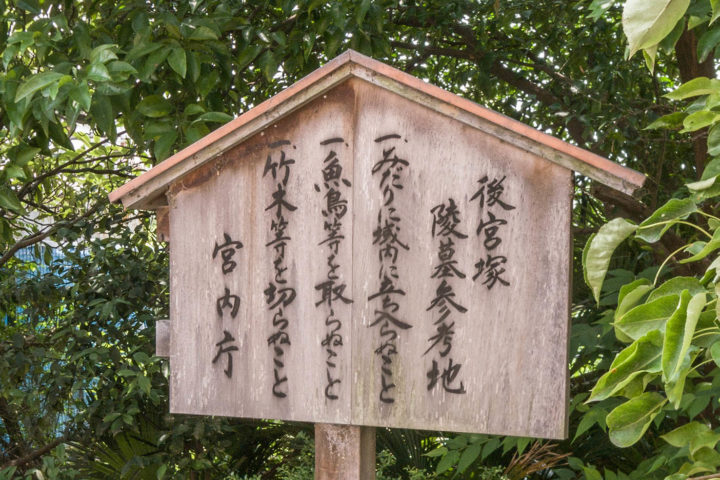 後宮塚
陵墓参考地
一、みだりに域内に立ち入らぬこと
一、魚鳥等を取らぬこと
一、竹木等を切らぬこと
宮内庁